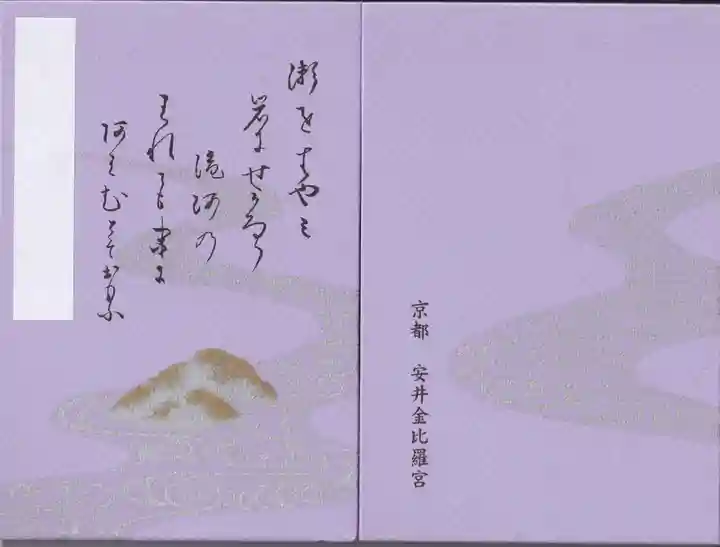 瀬をはやみ
岩にせかるる
滝河の
われても末に
阿はむとそおもふ
京都　安井金比羅宮